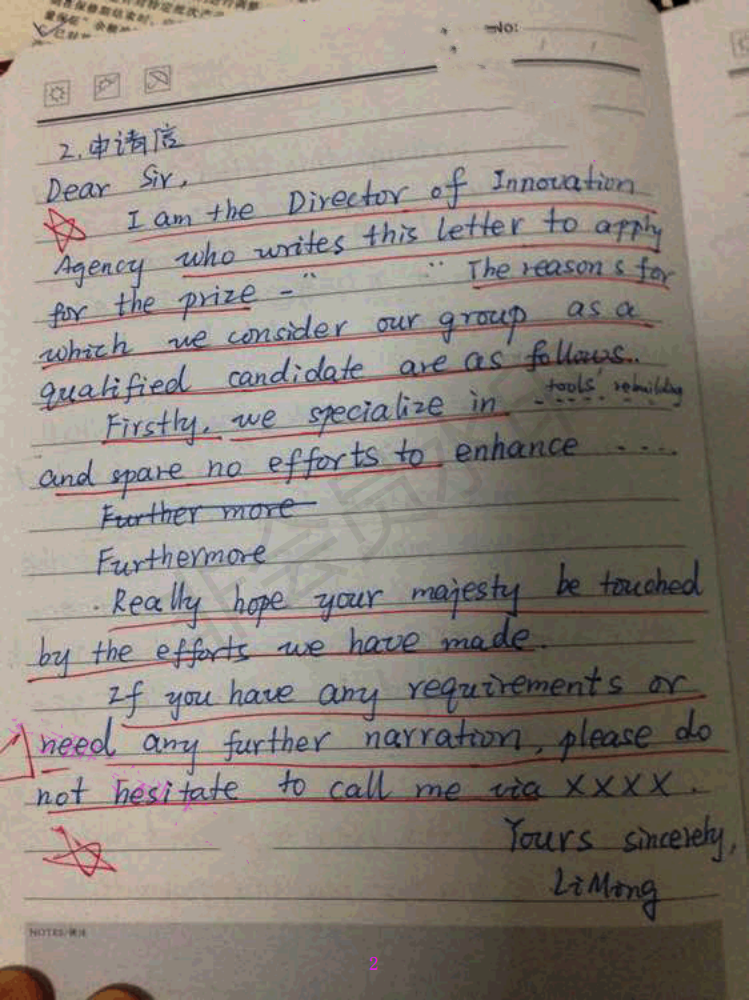 No:
2.申请信
Dear Sir,
I am the Director of Innovation
Agency who writes this letter to apply
for the prize - “ ” The reasons for
which we consider our group as a
qualified candidate are as follows..
Firstly, we specialize in ...... tools' rebuilding
and spare no efforts to enhance ....
Further more
Furthermore
. Really hope your majesty be touched
by the efforts we have made.
If you have any requirements or
need any further narration, please do
not hesitate to call me via XXXX.
Yours sincerely,
LiMing
NOTES/
2
非会员水印